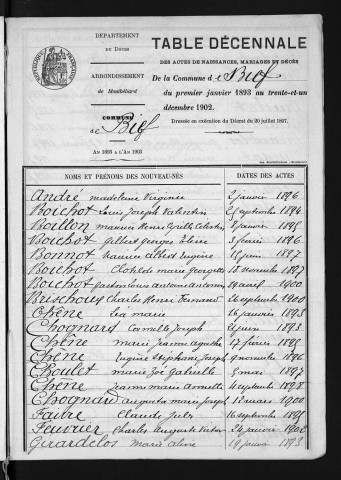 DÉPARTEMENT
DU DOUBS
ARRONDISSEMENT
de Montbéliard
COMMUNE
de Bief
AN 1893 A L'AN 1903
TABLE DÉCENNALE
DES ACTES DE NAISSANCES, MARIAGES ET DÉCÈS
De la Commune de Bief
du premier janvier 1893 au trente-et-un
décembre 1902.
Dressée en exécution du Décret du 20 juillet 1807.
NOMS ET PRÉNOMS DES NOUVEAU-NÉS DATES DES ACTES
André madeleine Virginie 2 janvier 1896
Boichot Louis Joseph Valentin septembre 1894
Boillon maurice Henri Cyrille Célestin janvier 1895
Boichot Gilbert Georges 3 février 1896
Bonnot Maurice Albert Eugène 15 juin 1897
Boichot Clotilde marie georgette 18 novembre 1897
Boichot gaston Louis antoine avril 1900
Charles Henri Fernand 26 septembre 1900
Chêne Léa marie 16 janvier 1893
Chognard Joseph juin 1893
Chêne marie Jeanne agathe 17 février 1895
Chêne Eugène Stéphane Joseph 9 novembre 1896
Choulet marie Zoé Gabrielle 5 mai 1897
Chêne Jeanne marie Annette 4 septembre 1898
Chognard augusta marie Joseph 12 mars 1900
Faivre Claude Jules 16 septembre 1895
Feuvrier Charles Auguste Victor 24 janvier 1902
Girardclos marie aline 19 janvier 1893